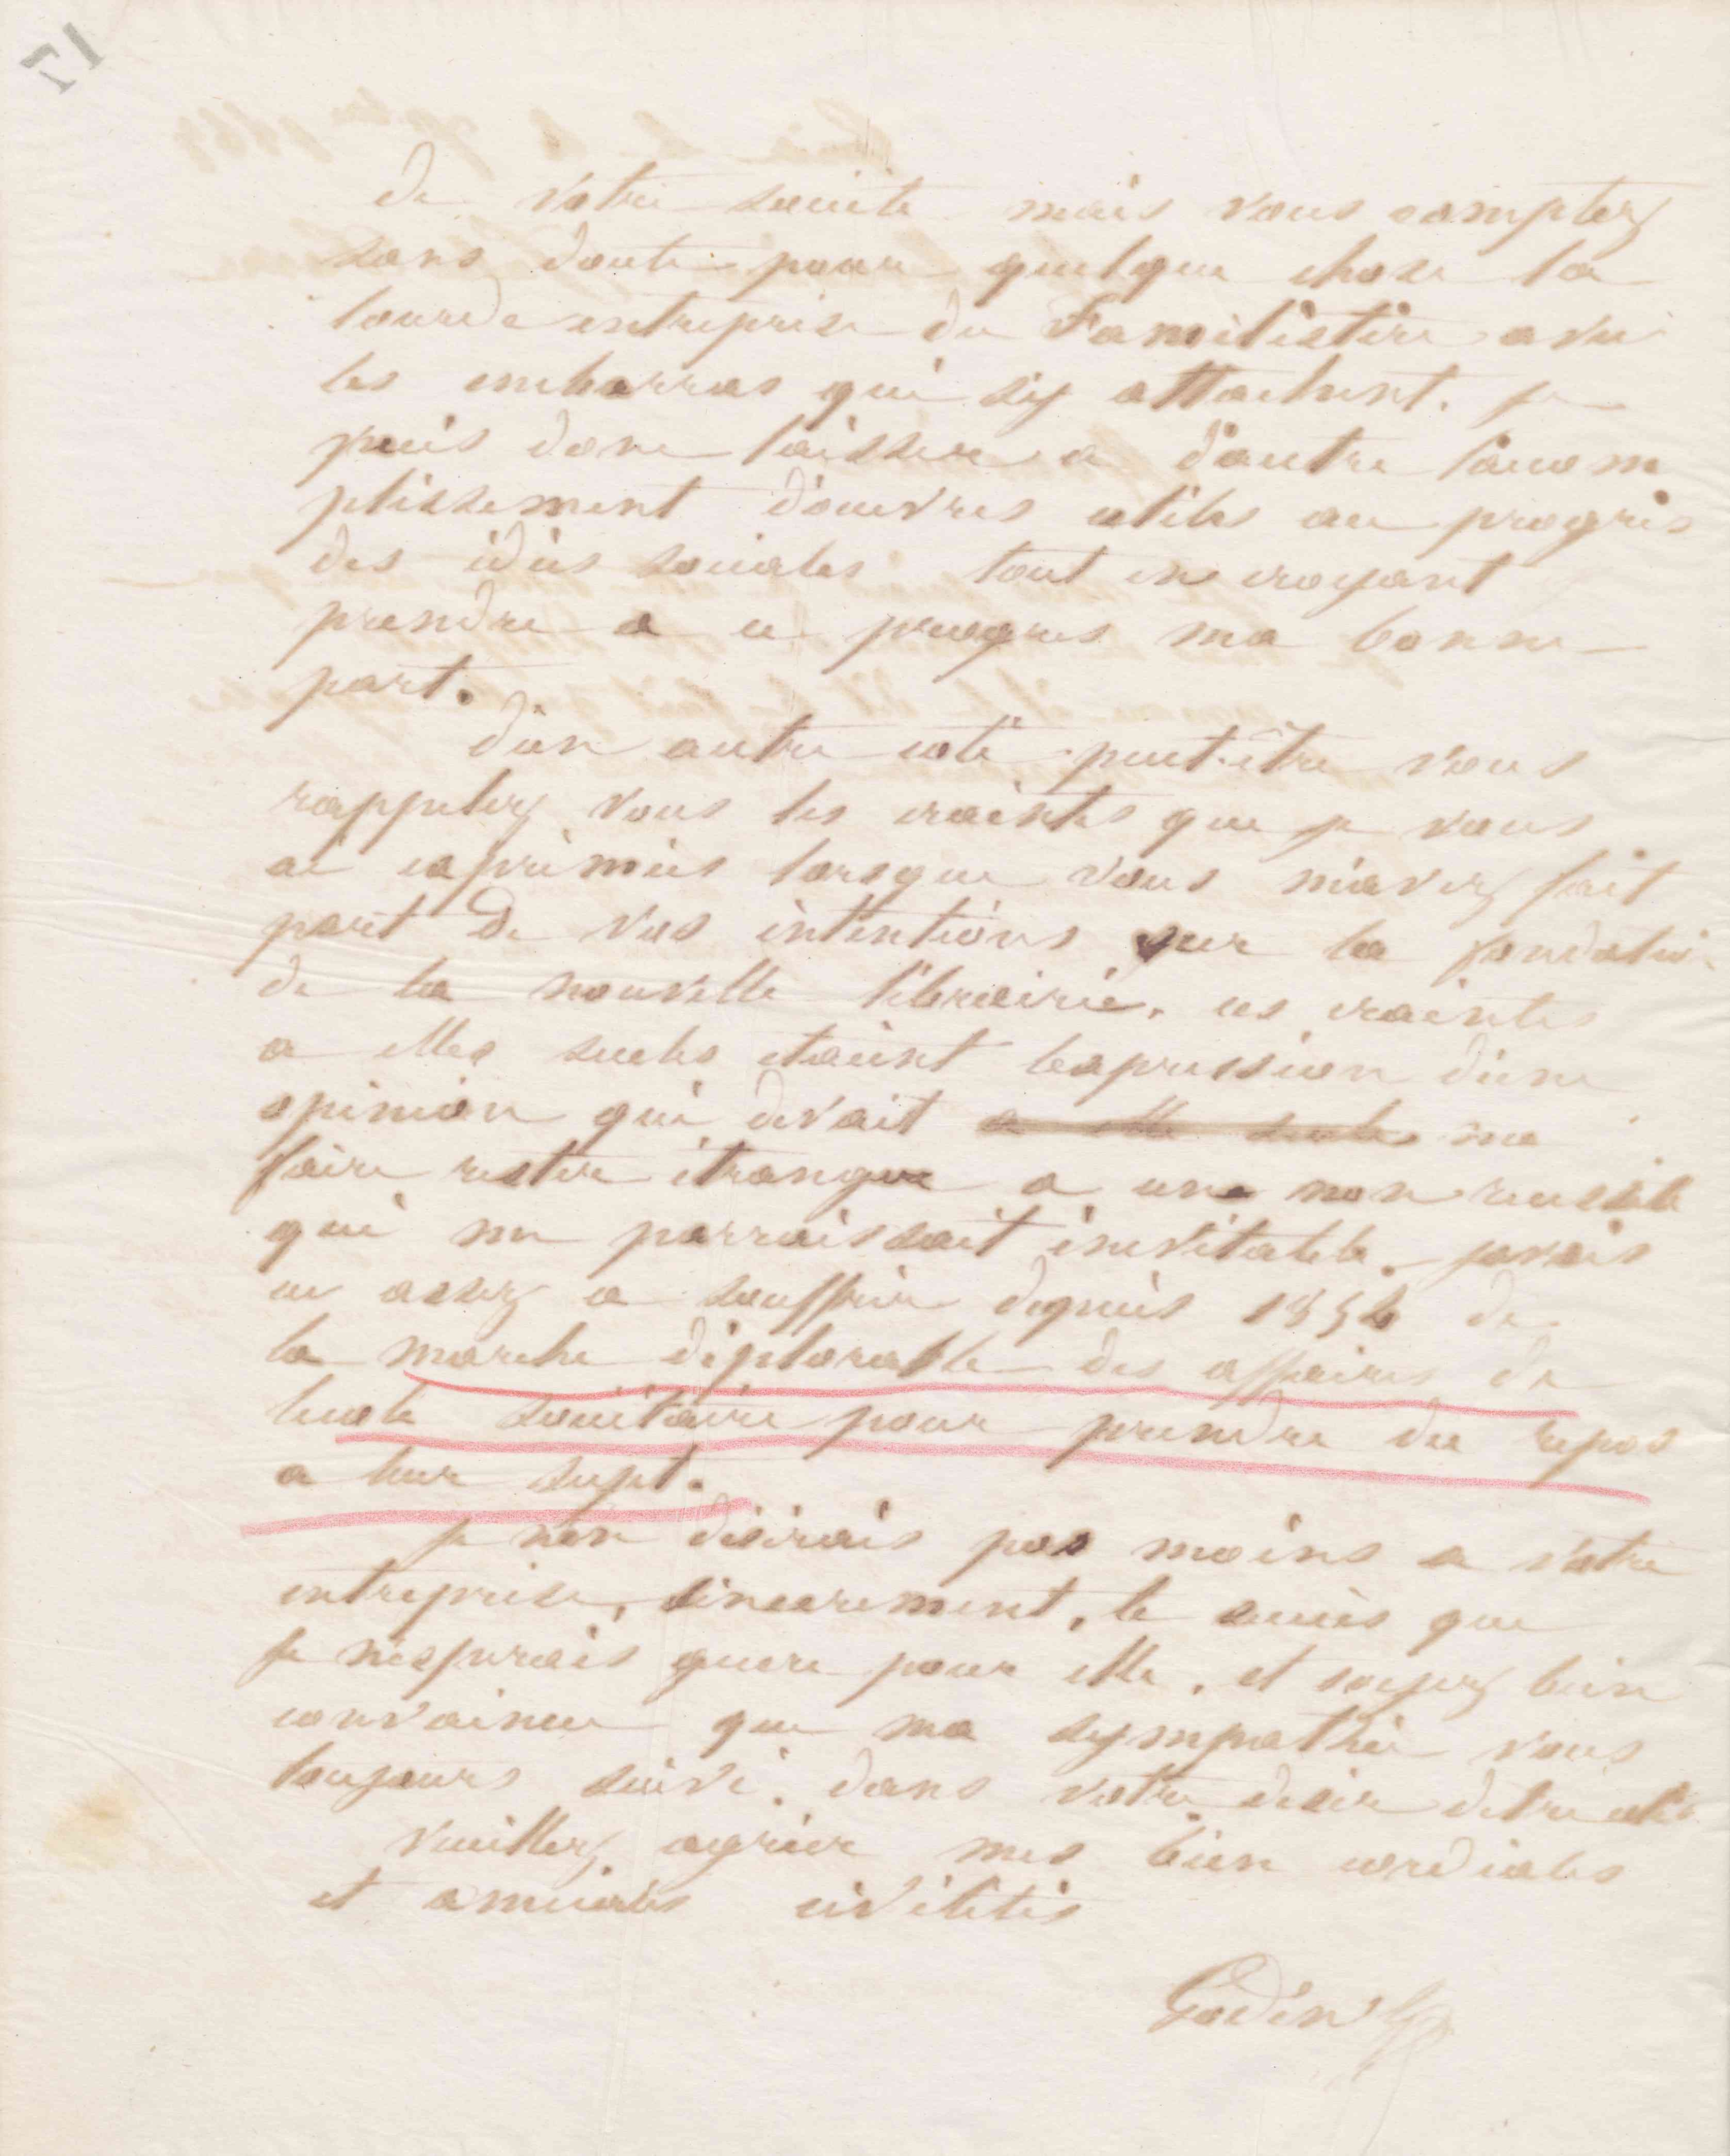 de votre societé mais vous comptez
sans doute pour quelque chose la
lourde entreprise du Familistère avec
les embarras qui s'y attachent. je
puis donc laisser a d'autre l'accom
plissement d'œuvres utiles au progrès
des idées sociales tout en croyant
prendre a ce progres ma bonne
part.
d'un autre coté peut-être vous
rappelez vous les craintes que je vous
ai exprimées lorsque vous m'avez fait
part de vos intentions sur la fondation
de la nouvelle librairie. ces craintes
a elles seules etaient l'expression d'une
opinion qui devait a elle seule me
faire rester étranger a une non reussite
qui me parraissait inevitable. javais
eu assez a souffrir depuis 1854 de
la marche déplorable des affaires de
lecole sociétaire pour prendre du repos
a leur sujet.
je n'en désirais pas moins a votre
entreprise, sincerement, le succès que
je n'esperais guere pour elle, et soyez bien
convaincu que ma sympathie vous
toujours suivi. dans votre desir detre utile
Veuillez agréer mes bien cordiales
et amicales civilités
Godin
17